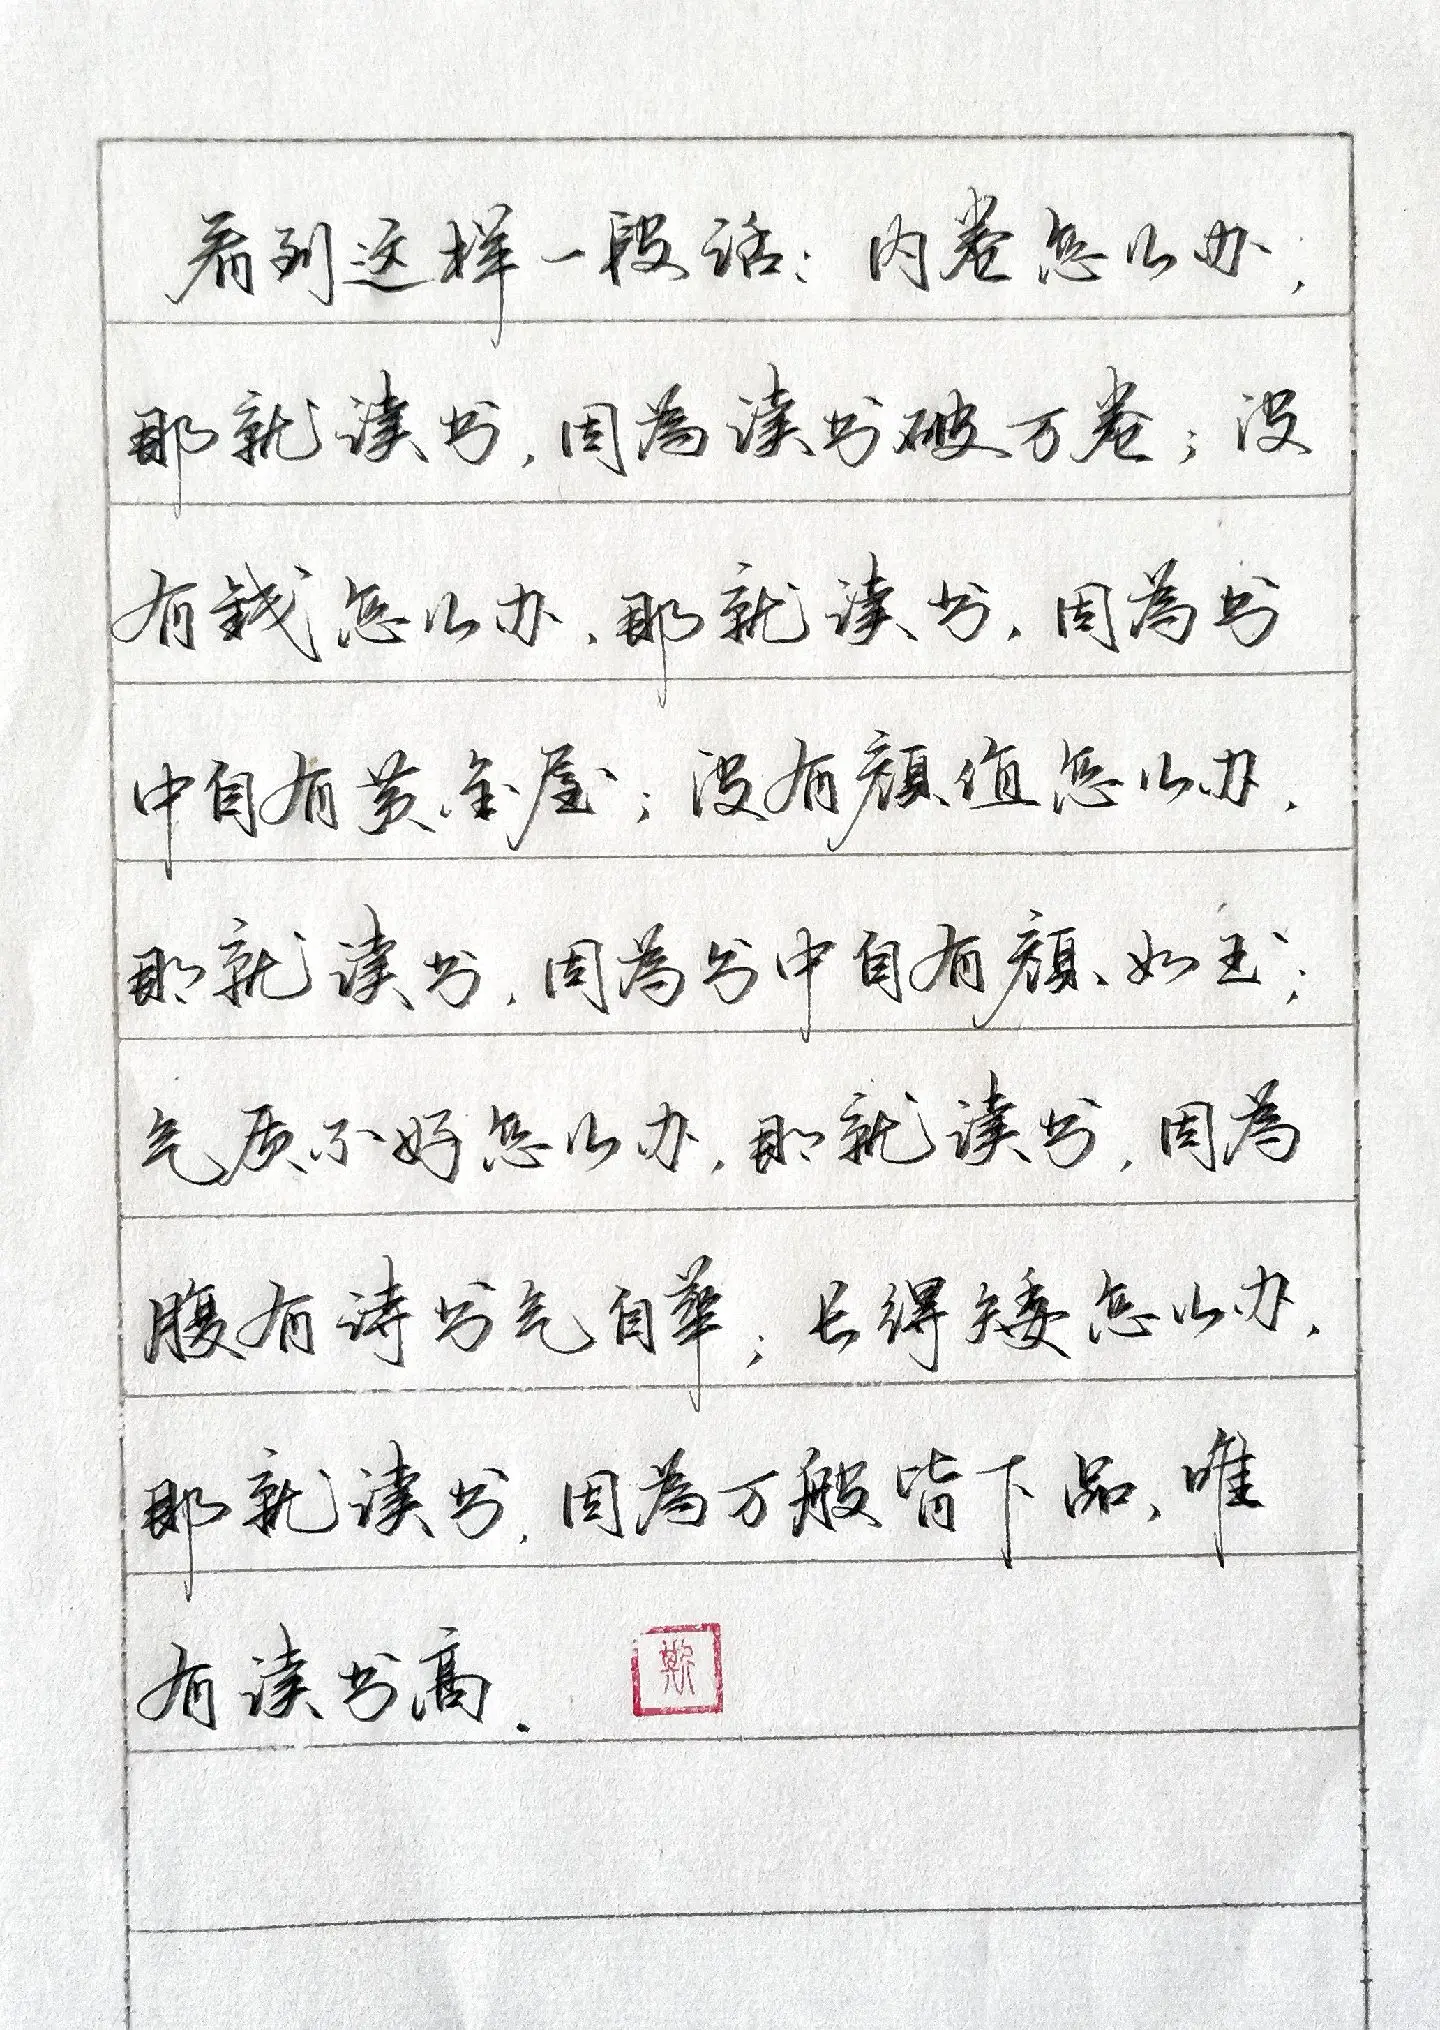 看到这样一段话：内卷怎么办，
那就读书，因為读书破万卷；没
有錢怎么办，那就读书，因為书
中自有黄金屋；没有颜值怎么办，
那就读书，因為书中自有颜如玉；
气质不好怎么办，那就读书，因為
腹有诗书气自華；长得矮怎么办，
那就读书，因為万般皆下品，唯
有读书高．